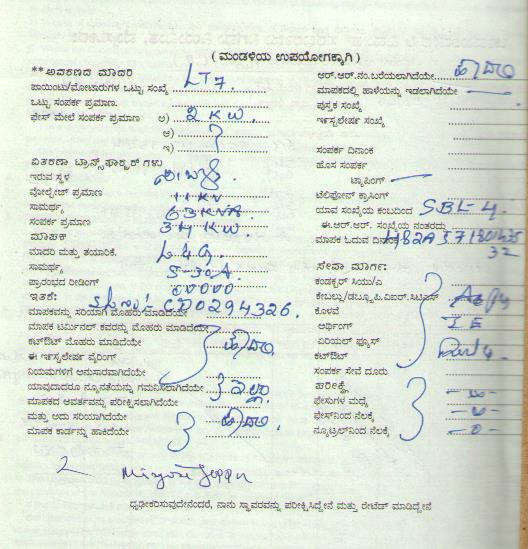 ( ಮಂಡಳಿಯ ಉಪಯೋಗಕ್ಕಾಗಿ )
**ಆವರಣದ ಮಾದರಿ LT7.
ಪಾಯಿಂಟು/ಮೋಟಾರುಗಳ ಒಟ್ಟು ಸಂಖ್ಯೆ
ಒಟ್ಟು ಸಂಪರ್ಕ ಪ್ರಮಾಣ.
ಫೇಸ್ ಮೇಲೆ ಸಂಪರ್ಕ ಪ್ರಮಾಣ ಅ) 2 KW.
ಆ)
ಇ)
ವಿತರಣಾ ಟ್ರಾನ್ಸ್‌ಫಾರ್ಮರ್ ಗಳು
ಇರುವ ಸ್ಥಳ
ವೋಲ್ಟೇಜ್ ಪ್ರಮಾಣ 11KV
ಸಾಮರ್ಥ್ಯ 63KVA.
ಸಂಪರ್ಕ ಪ್ರಮಾಣ 34 KW.
ಮಾಪಕ
ಮಾದರಿ ಮತ್ತು ತಯಾರಿಕೆ. L&G.
ಸಾಮರ್ಥ್ಯ 5-30A.
ಪ್ರಾರಂಭದ ರೀಡಿಂಗ್ 00000
ಇತರೆ: Sl.no:- CD0294326.
ಮಾಪಕವನ್ನು ಸರಿಯಾಗಿ ಮೊಹರು ಮಾಡಿದೆಯೇ
ಮಾಪಕ ಟರ್ಮಿನಲ್ ಕವರನ್ನು ಮೊಹರು ಮಾಡಿದೆಯೇ
ಕಟ್‌ಔಟ್ ಮೊಹರು ಮಾಡಿದೆಯೇ ಹೌದು
ಈ ಇನ್ಸ್ಟಲೇಷನ್ ವೈರಿಂಗ್
ನಿಯಮಗಳಿಗೆ ಅನುಸಾರವಾಗಿದೆಯೇ
ಯಾವುದಾದರೂ ನ್ಯೂನತೆಯನ್ನು ಗಮನಿಸಲಾಗಿದೆಯೇ ಇಲ್ಲ
ಮಾಪಕದ ಆವರ್ತವನ್ನು ಪರೀಕ್ಷಿಸಲಾಗಿದೆಯೇ
ಮತ್ತು ಅದು ಸರಿಯಾಗಿದೆಯೇ ಹೌದು
ಮಾಪಕ ಕಾರ್ಡನ್ನು ಹಾಕಿದೆಯೇ
ಆರ್.ಆರ್.ನಂ.ಬರೆಯಲಾಗಿದೆಯೇ ಹೌದು
ಮಾಪಕದಲ್ಲಿ ಹಾಳೆಯನ್ನು ಇಡಲಾಗಿದೆಯೇ
ಪುಸ್ತಕ ಸಂಖ್ಯೆ
ಇನ್ಸ್ಟಲೇಷನ್ ಸಂಖ್ಯೆ
ಸಂಪರ್ಕ ದಿನಾಂಕ
ಹೊಸ ಸಂಪರ್ಕ
ಟ್ಯಾಪಿಂಗ್
ಟೆಲಿಫೋನ್ ಕ್ರಾಸಿಂಗ್
ಯಾವ ಸಂಖ್ಯೆಯ ಕಂಬದಿಂದ SBL-4.
ಈ.ಆರ್.ಆರ್. ಸಂಖ್ಯೆಯ ನಂತರದ್ದು
ಮಾಪಕ ಓದುವ ದಿನಾಂಕ
32
ಸೇವಾ ಮಾರ್ಗ:
ಕಂಡಕ್ಟರ್ ಸಿಯು/ಎ
ಕೊಳವೆ
ಅರ್ಥಿಂಗ್ I E
ಏರಿಯಲ್ ಫ್ಯೂಸ್
ಕಟ್‌ಔಟ್
ಸಂಪರ್ಕ ಸೇವೆ ದೂರು
ಪರೀಕ್ಷೆ
ಫೇಸುಗಳ ಮಧ್ಯೆ
ಫೇಸ್‌ನಿಂದ ನೆಲಕ್ಕೆ
ನ್ಯೂಟ್ರಲ್‌ನಿಂದ ನೆಲಕ್ಕೆ -0-
ಧೃಢೀಕರಿಸುವುದೇನೆಂದರೆ, ನಾನು ಸ್ಥಾವರವನ್ನು ಪರೀಕ್ಷಿಸಿದ್ದೇನೆ ಮತ್ತು ರೇಟೆಡ್ ಮಾಡಿದ್ದೇನೆ